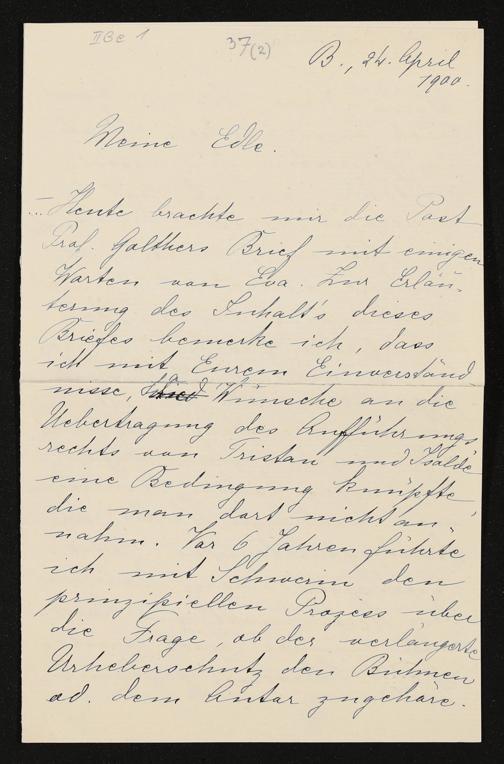 II Be 1
37(2)
B., 24. April
1900.
Meine Edle.
... Heute brachte mir die Post
Prof. Golthers Brief mit einigen
Worten von Eva. Zur Erläu-
terung des Inhalt's dieses
Briefes bemerke ich, dass
ich mit Eurem Einverständ
nisse, od. Wünsche an die
Uebertragung des Aufführungs
rechts von "Tristan und Isolde"
eine Bedingung knüpfte,
die man dort nicht an-
nahm. Vor 6 Jahren führte
ich mit Schwerin den
prinzipiellen Prozess über
die Frage, ob der verlängerte
Urheberschutz den Bühnen
od. dem Autor zugehöre.